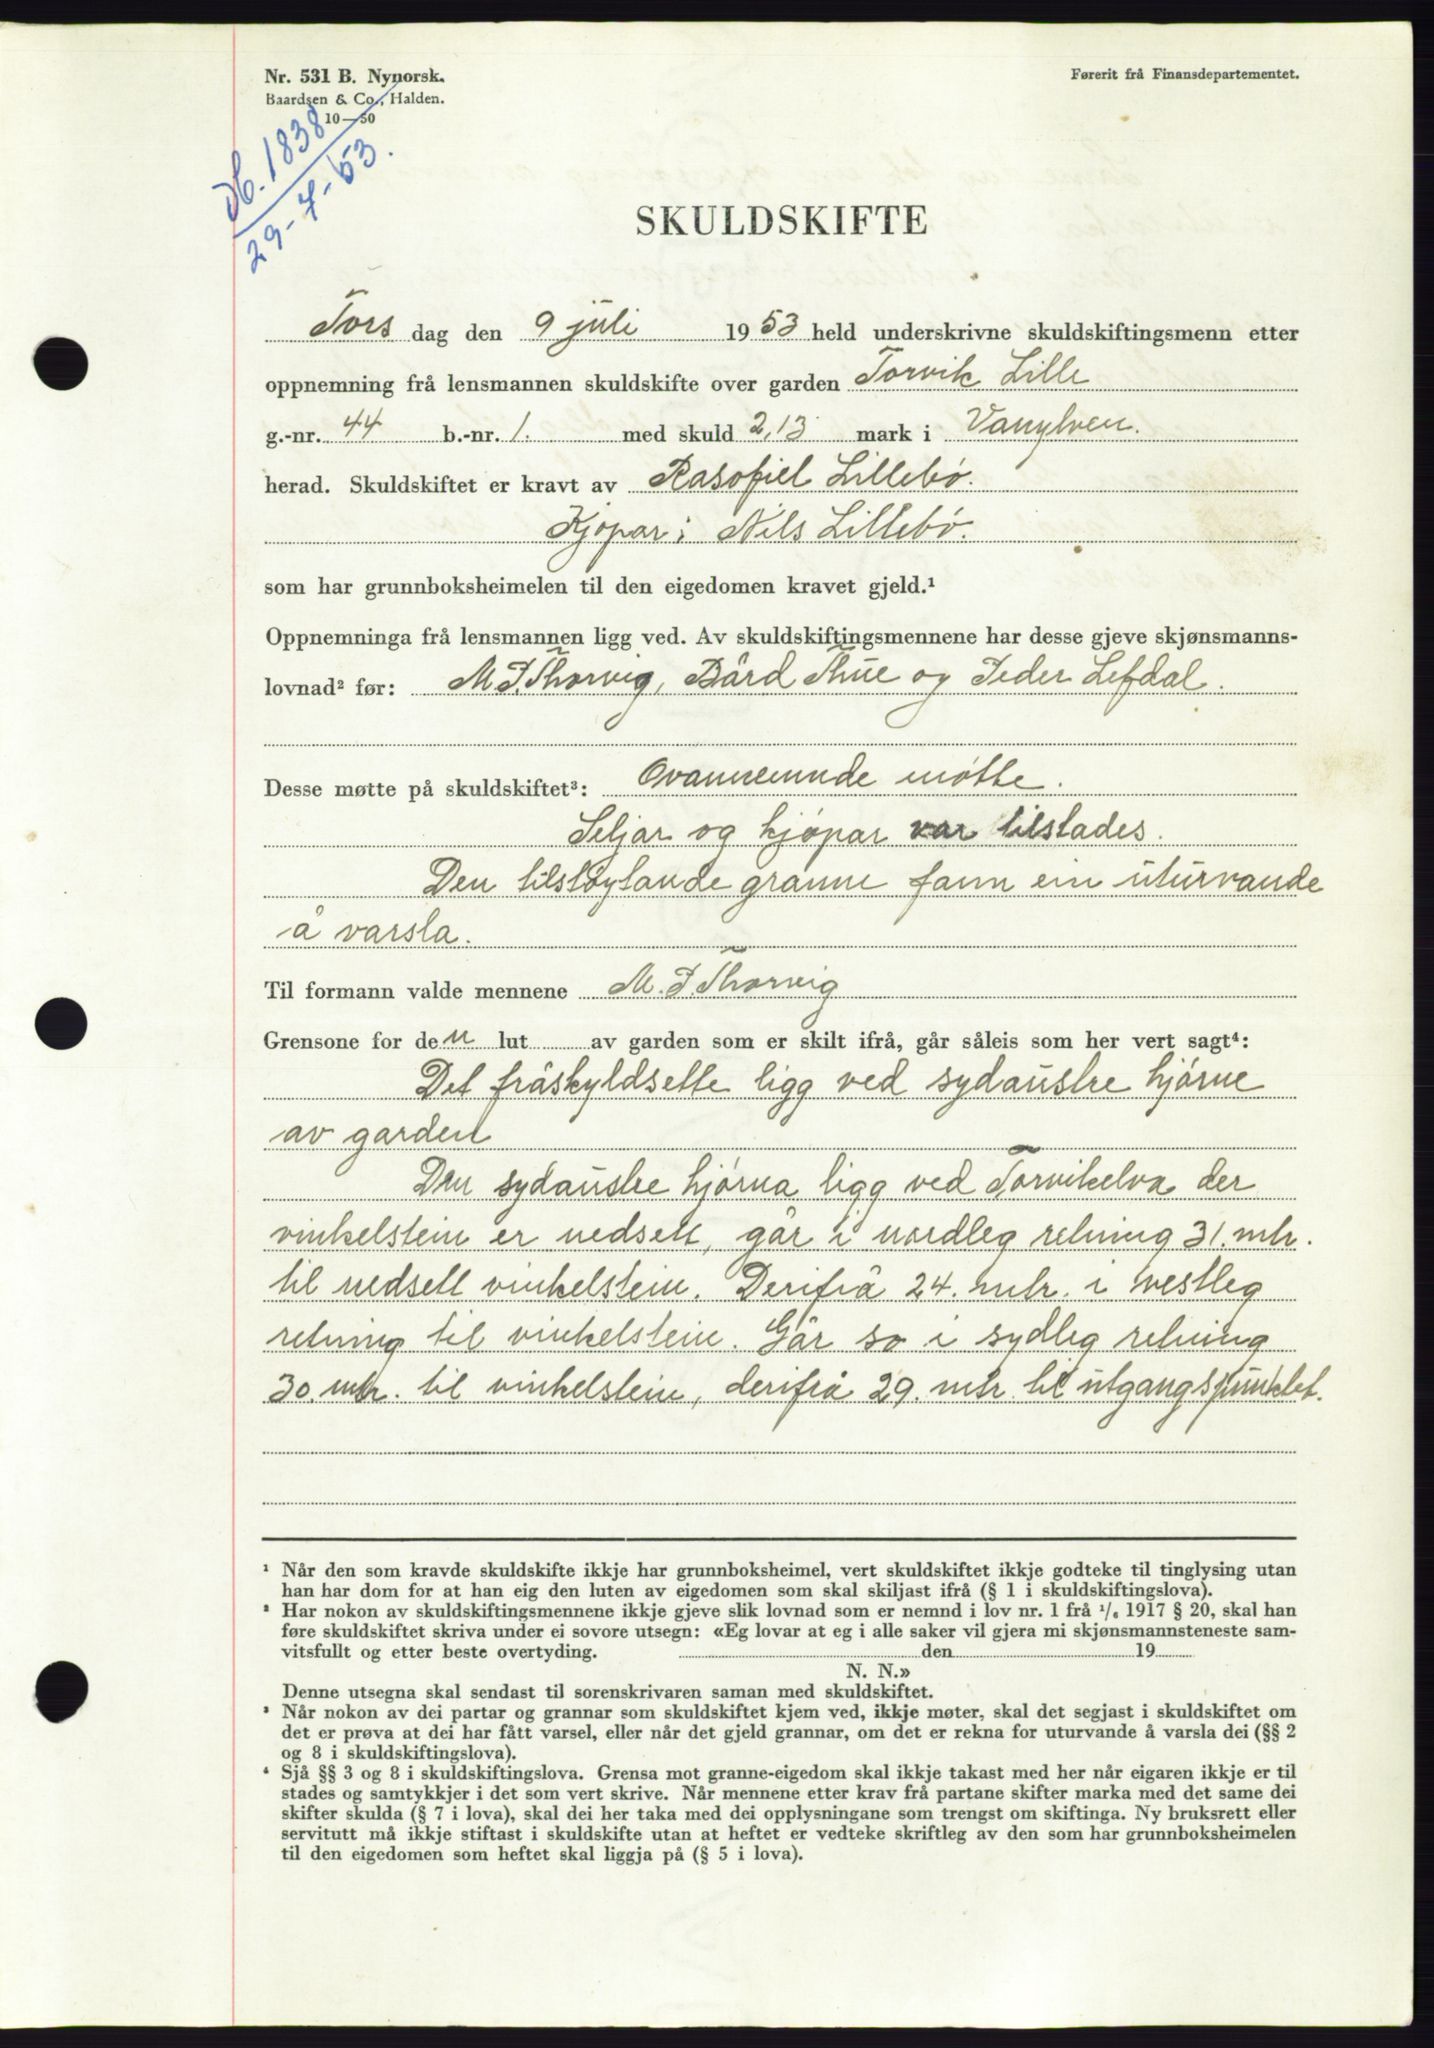 Nr. 531 B. Nynorsk.
Baardsen & Co., Halden.
10—50
Førerit frå Finansdepartementet.
Db. 1838
29-7-53.
SKULDSKIFTE
Tors dag den 9 juli 1953 held underskrivne skuldskiftingsmenn etter
oppnemning frå lensmannen skuldskifte over garden Torvik Lille
g.-nr. 44 b.-nr. 1. med skuld 2,13 mark i Vanylven.
herad. Skuldskiftet er kravt av Rasofiel Lillebø.
Kjøpar: Nils Lillebø.
som har grunnboksheimelen til den eigedomen kravet gjeld.¹
Oppnemninga frå lensmannen ligg ved. Av skuldskiftingsmennene har desse gjeve skjønsmanns-
lovnad² før: M. P. Thorvig, Bård Thue og Peder Lefdal.
Desse møtte på skuldskiftet³: Ovannemnde møtte.
Seljar og kjøpar var tilstades.
Den tilstøytande granne fann ein uturvande
å varsla.
Til formann valde mennene M. P. Thorvig
Grensone for den lut av garden som er skilt ifrå, går såleis som her vert sagt⁴:
Det fråskyldsette ligg ved sydaustre hjørne
av garden
Den sydaustre hjørna ligg ved Torvikelva der
vinkelstein er nedsett, går i nordleg retning 31. mtr.
til nedsett vinkelstein. Derifrå 24. mtr. i vestleg
retning til vinkelstein. Går so i sydleg retning
30. mtr. til vinkelstein, derifrå 29. mtr. til utgangspunktet.
¹ Når den som kravde skuldskifte ikkje har grunnboksheimel, vert skuldskiftet ikkje godteke til tinglysing utan
han har dom for at han eig den luten av eigedomen som skal skiljast ifrå (§ 1 i skuldskiftingslova).
² Har nokon av skuldskiftingsmennene ikkje gjeve slik lovnad som er nemnd i lov nr. 1 frå ¹/₆ 1917 § 20, skal han
føre skuldskiftet skriva under ei sovore utsegn: «Eg lovar at eg i alle saker vil gjera mi skjønsmannsteneste sam-
vitsfullt og etter beste overtyding. den 19
N. N.»
Denne utsegna skal sendast til sorenskrivaren saman med skuldskiftet.
³ Når nokon av dei partar og grannar som skuldskiftet kjem ved, ikkje møter, skal det segjast i skuldskiftet om
det er prøva at dei har fått varsel, eller når det gjeld grannar, om det er rekna for uturvande å varsla dei (§§ 2
og 8 i skuldskiftingslova).
⁴ Sjå §§ 3 og 8 i skuldskiftingslova. Grensa mot granne-eigedom skal ikkje takast med her når eigaren ikkje er til
stades og samtykkjer i det som vert skrive. Når mennene etter krav frå partane skifter marka med det same dei
skifter skulda (§ 7 i lova), skal dei her taka med dei opplysningane som trengst om skiftinga. Ny bruksrett eller
servitutt må ikkje stiftast i skuldskifte utan at heftet er vedteke skriftleg av den som har grunnboksheimelen
til den eigedomen som heftet skal liggja på (§ 5 i lova).